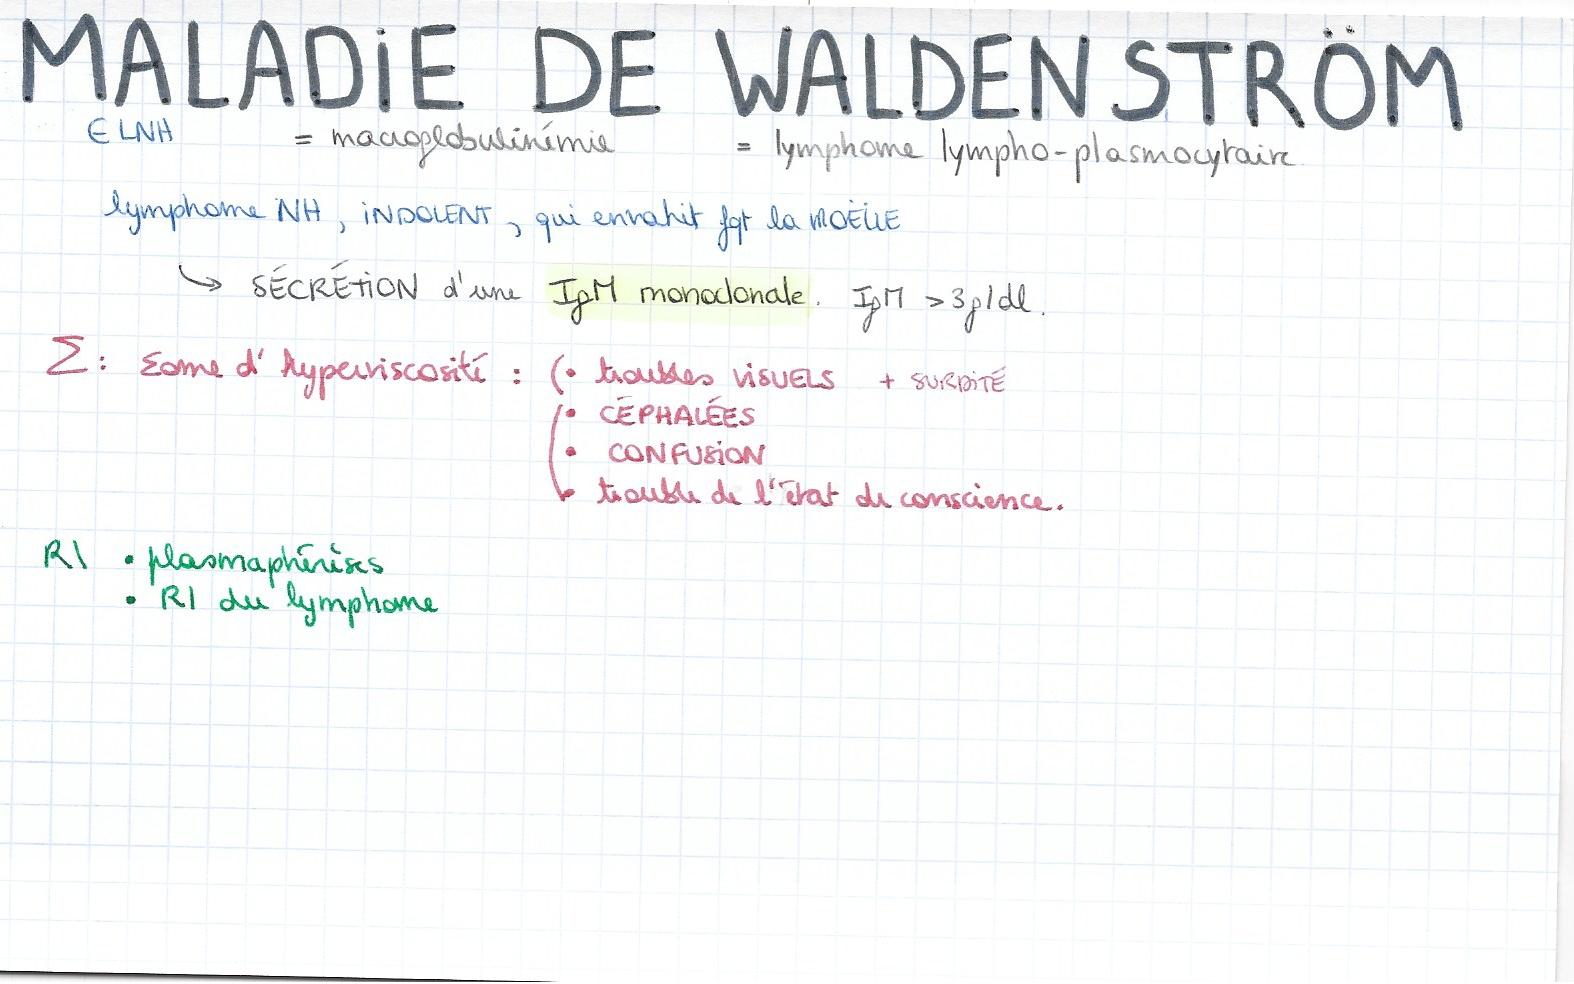 MALADIE DE WALDENSTRÖM
∈ LNH = macroglobulinémie = lymphome lympho-plasmocytaire
lymphome NH, INDOLENT, qui envahit fqt la MOËLLE
↳ SÉCRÉTION d'une IgM monoclonale. IgM > 3g/dl.
Σ: Σome d'hyperviscosité : • troubles VISUELS + SURDITÉ
• CÉPHALÉES
• CONFUSION
• trouble de l'état de conscience.
R\ • plasmaphérèses
• R\ du lymphome